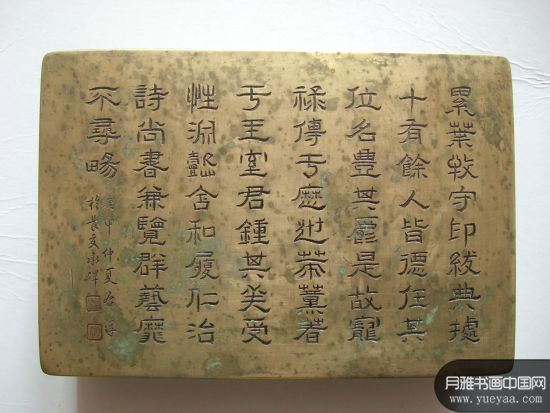 累葉牧守印紱典據
十有餘人皆德任其
位名豐其爵是故寵
祿傳于歷世策薰著
于王室君鍾其美受
性淵懿含和履仁治
詩尚書兼覽群藝靡
不尋暘
申仲夏
夏承碑
月雅书画中国网
www.yueyaa.com